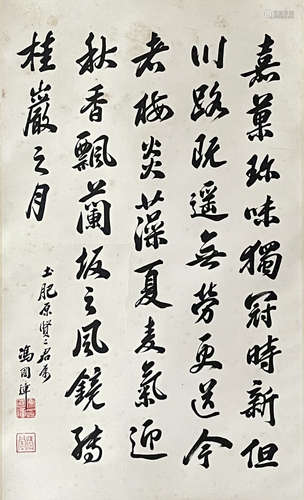 嘉菓珍味獨冠時新但
川路既遥無劳更送今
老梅炎藻夏麦氣迎
秋香飄蘭坂之風鏡轉
桂巖之月
土肥原賢二君属
馮國璋